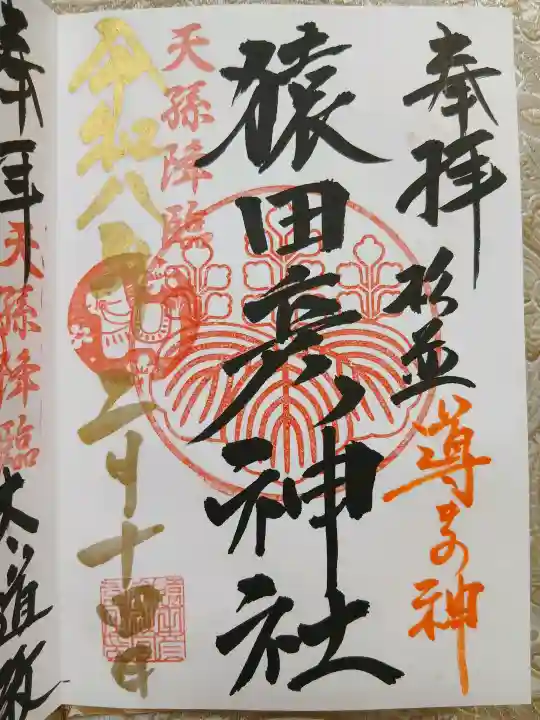 奉拝
杉並
導きの神
猿田彦神社
天孫降臨
令和八年二月十四日
奉拝
天孫降臨
大道